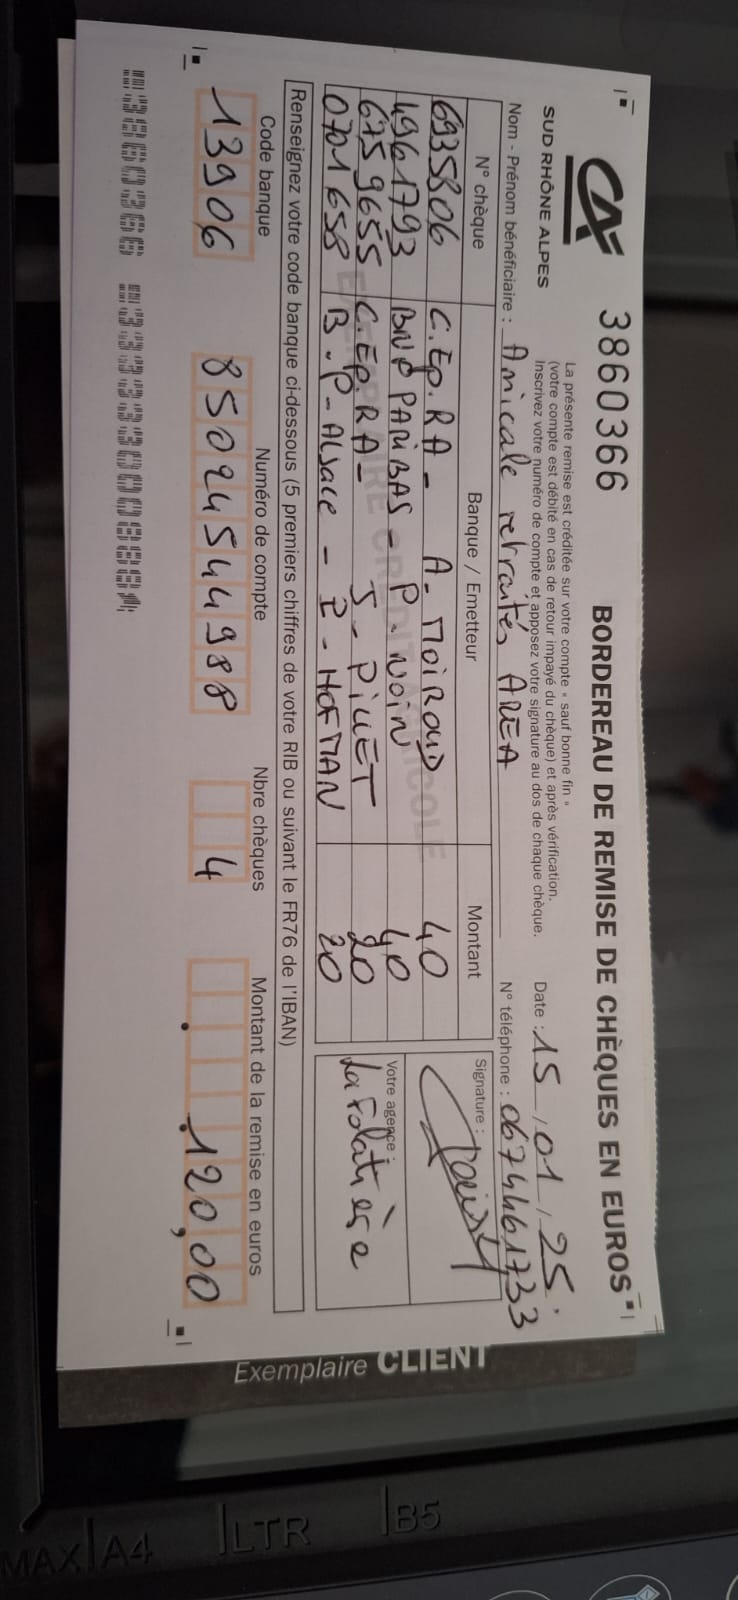 CA 3860366 BORDEREAU DE REMISE DE CHÈQUES EN EUROS
SUD RHÔNE ALPES
La présente remise est créditée sur votre compte " sauf bonne fin "
(votre compte est débité en cas de retour impayé du chèque) et après vérification.
Inscrivez votre numéro de compte et apposez votre signature au dos de chaque chèque.
Date : 15 / 01 / 25.
Nom - Prénom bénéficiaire : Amicale retraités AREA
N° téléphone : 0674461733
N° chèque Banque / Emetteur Montant
6935806 C.Ep.RA - A- MOIROUD 40
4961793 BNP PARIBAS - P- 40
6759655 C.Ep.RA - J - PILLET 20
0701658 B.P- Alsace - I - HOFMAN 20
EXEMPLAIRE CRÉDIT AGRICOLE
Signature :
Votre agence :
La Folatière
Renseignez votre code banque ci-dessous (5 premiers chiffres de votre RIB ou suivant le FR76 de l'IBAN)
Code banque Numéro de compte Nbre chèques Montant de la remise en euros
13906 85024544988 4 120,00
Exemplaire CLIENT
MAX A4 LTR B5